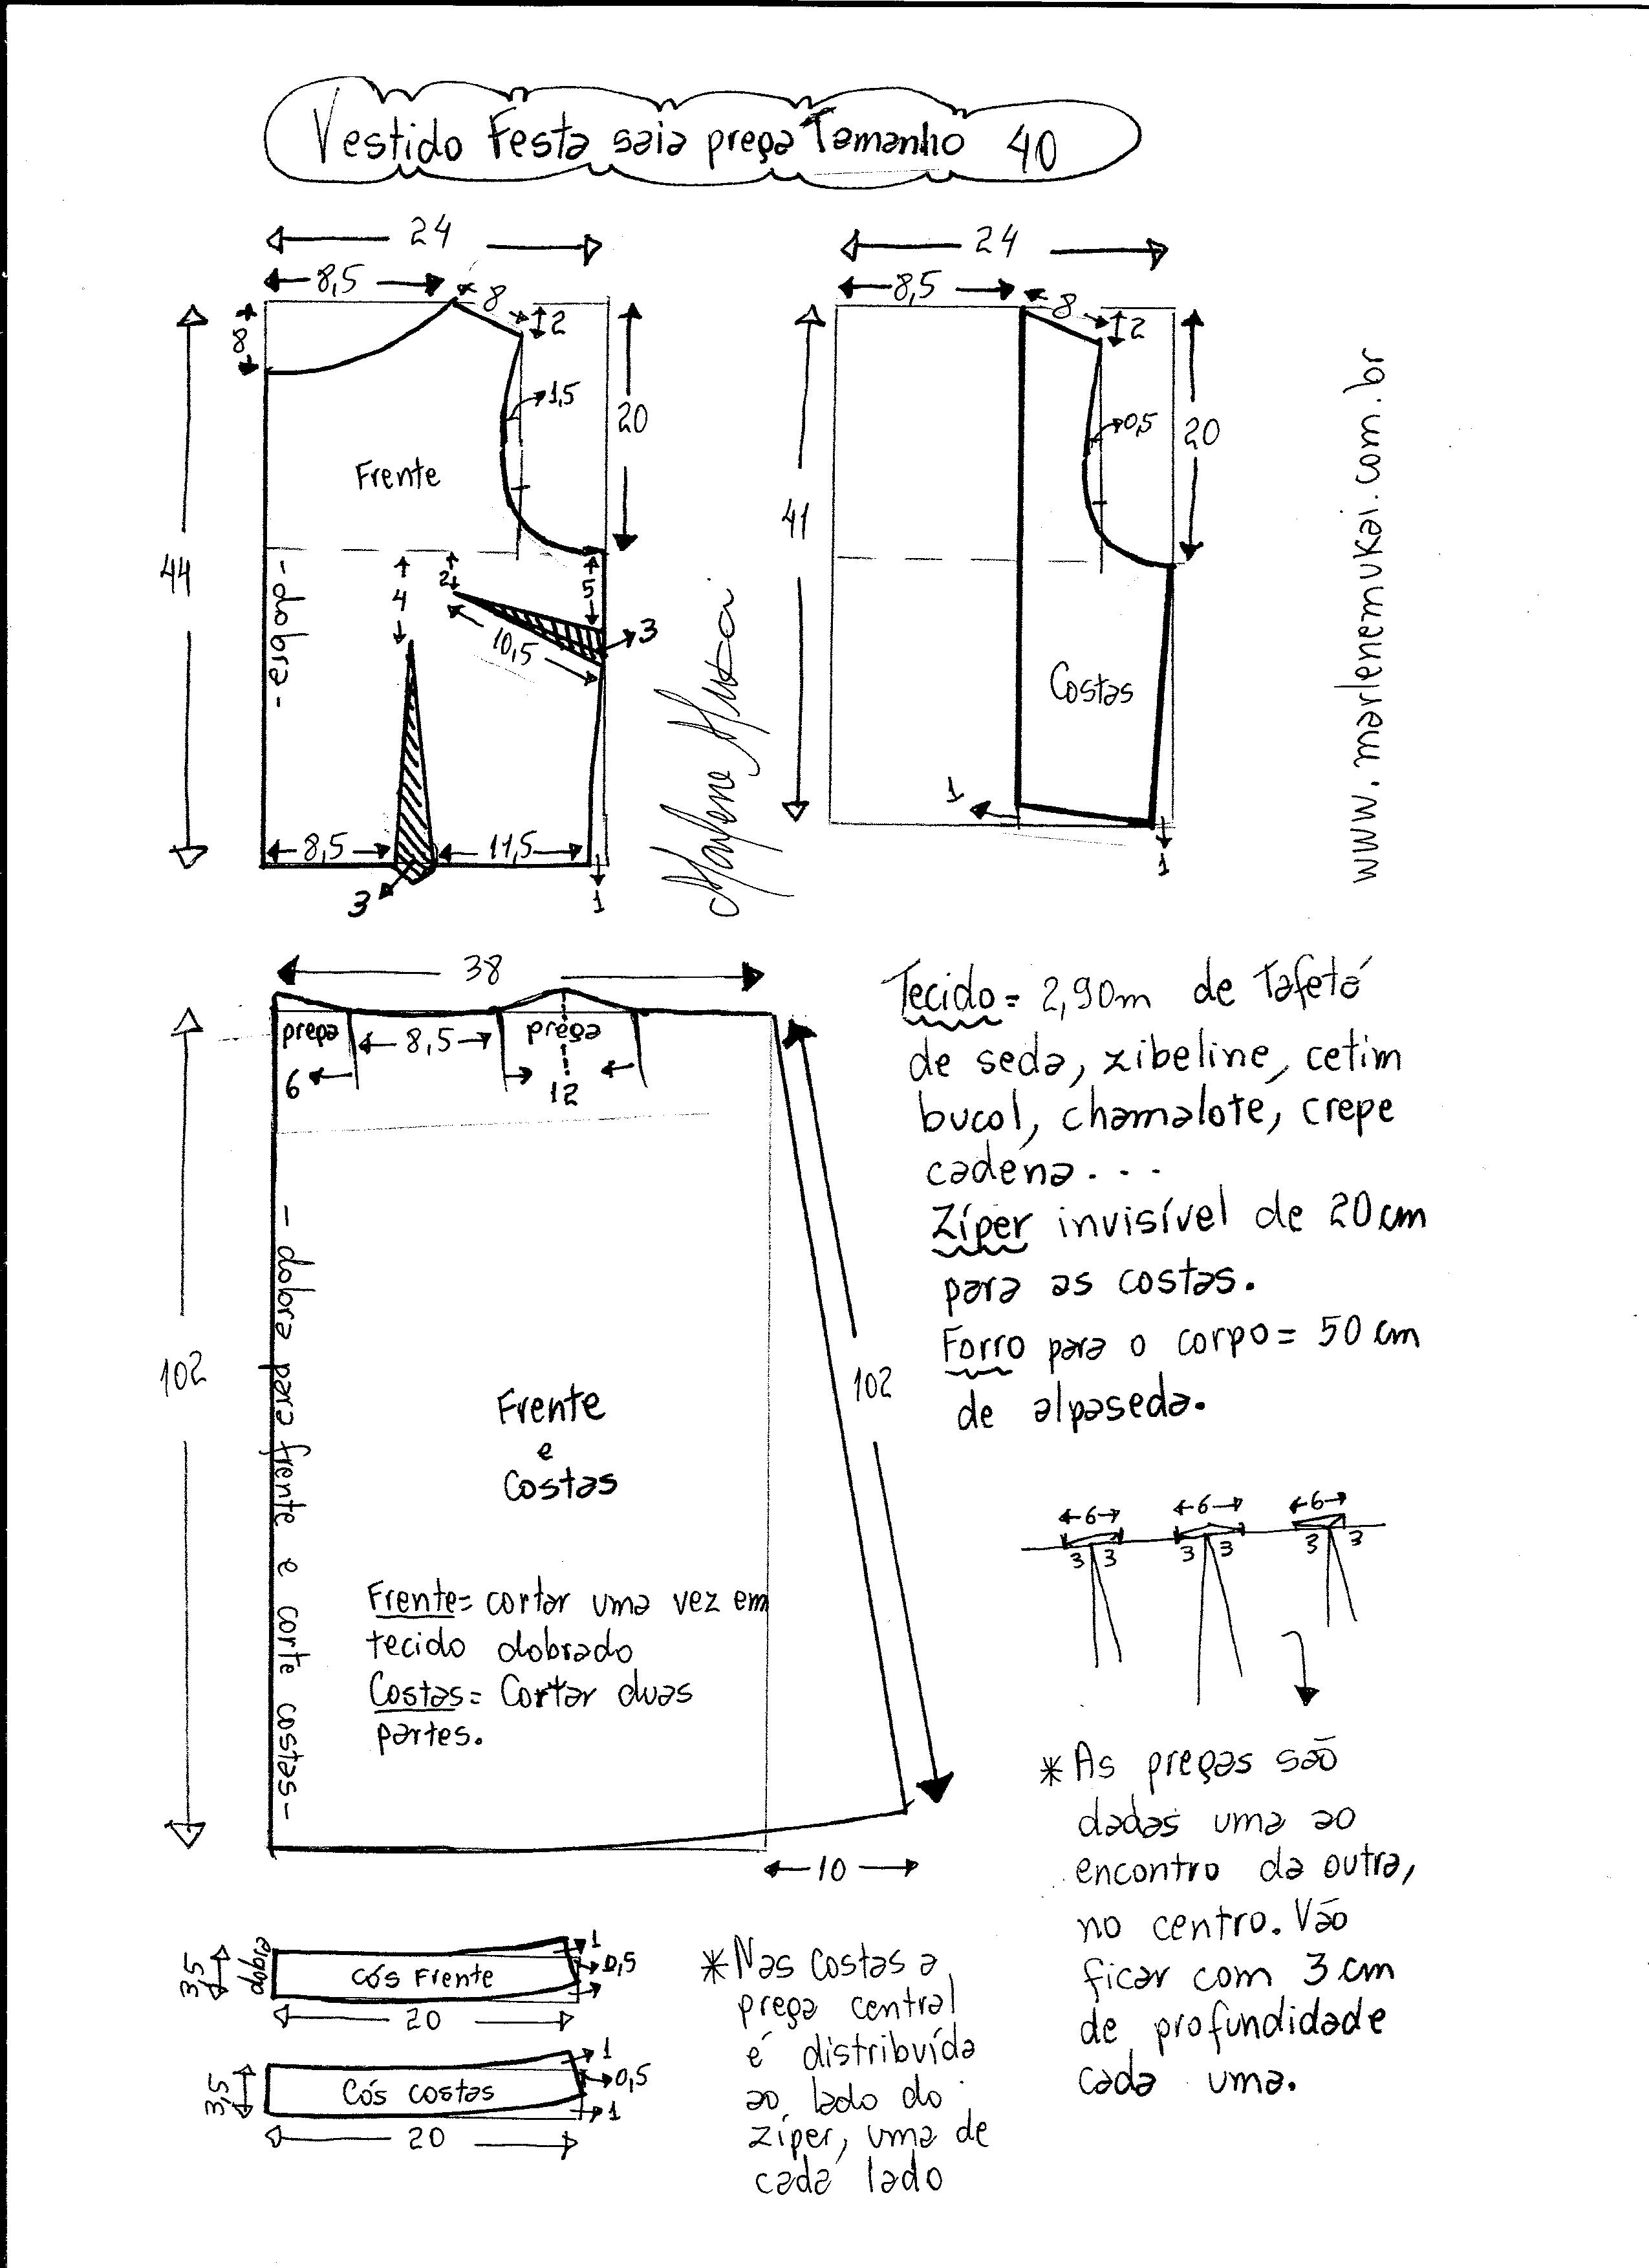 Vestido Festa saia prega Tamanho 40
24
8,5
8
2
8
1,5
20
Frente
44
- dobra -
4
2
5
10,5
3
8,5
11,5
3
1
24
8,5
8
2
0,5
20
41
Costas
1
1
www.marlenemukai.com.br
38
prega
8,5
prega
6
12
102
- dobra para frente e corte costas -
102
Frente
e
Costas
Frente = cortar uma vez em
tecido dobrado
Costas = Cortar duas
partes.
10
Tecido = 2,90m de Tafetá
de seda, zibeline, cetim
bucol, chamalote, crepe
cadena...
Zíper invisível de 20 cm
para as costas.
Forro para o corpo = 50 cm
de alpaseda.
6 6 6
3 3 3 3 3 3
* As pregas são
dadas uma ao
encontro da outra,
no centro. Vão
ficar com 3 cm
de profundidade
cada uma.
3,5
dobra
Cós Frente
1
0,5
20
3,5
Cós costas
1
0,5
1
20
* Nas costas a
prega central
é distribuída
ao lado do
zíper, uma de
cada lado